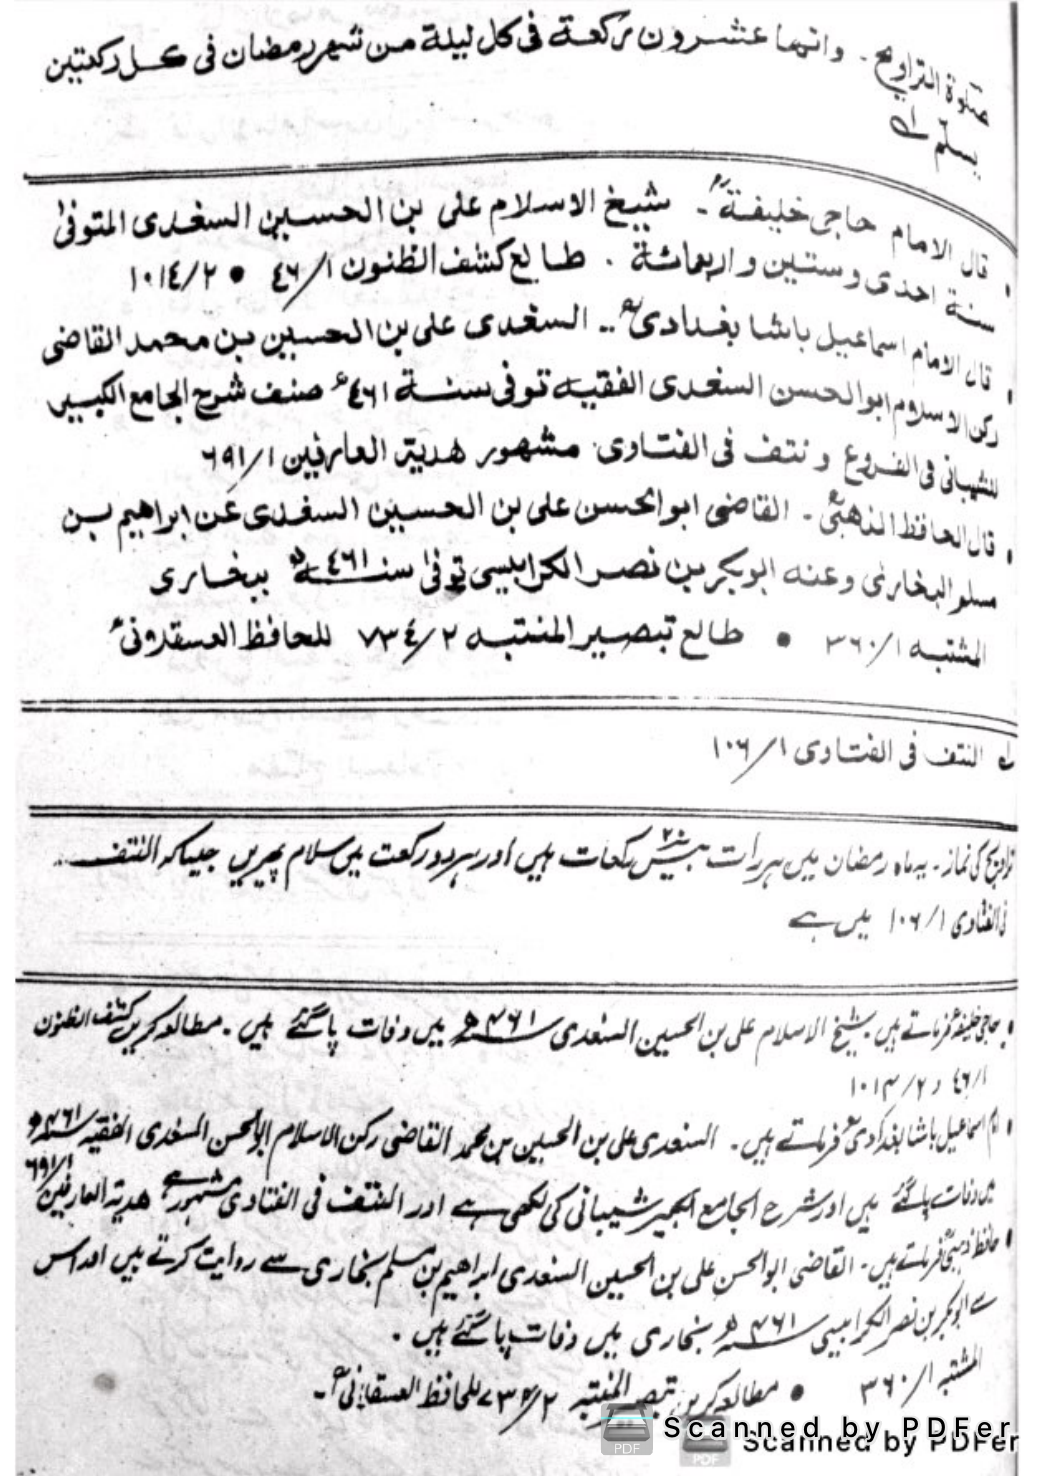 صلوة التراويح ۔ وانها عشرون ركعة فى كل ليلة من شهر رمضان فى كل ركعتين
يسلم
قال الامام حاجى خليفةؒ ۔ شيخ الاسلام على بن الحسين السغدى المتوفىٰ
سنة احدى وستين واربعمائة ۔ طالع كشف الظنون ١/٤٦ • ٢/١٠١٤
قال الامام اسماعيل باشا بغدادىؒ ۔۔ السغدى على بن الحسين بن محمد القاضى
ركن الاسلام ابوالحسن السغدى الفقيه توفى سنة ٤٦١؁ صنف شرح الجامع الكبير
للشيبانى فى الفروع و نتف فى الفتاوى مشهور هدية العارفين ١/٦٩١
قال الحافظ الذهبىؒ ۔ القاضى ابوالحسن على بن الحسين السغدى عن ابراهيم بن
مسلم البخارى وعنه ابوبكر بن نصر الكرابيسى توفىٰ سنة ٤٦١ھ ببخارى
المشتبه ١/٣٦٠ • طالع تبصير المنتبه ٢/٧٣٤ للحافظ العسقلانىؒ
النتف فى الفتاوى ١/١٠٦
تراویح کی نماز ۔ یہ ماہ رمضان میں ہر رات بیس ۲۰ رکعات ہیں اور ہر دو رکعت میں سلام پھیریں جیسا کہ النتف ۔۔
فی الفتاوی ۱/۱۰۶ میں ہے
حاجی خلیفہؒ فرماتے ہیں ۔ شیخ الاسلام علی بن الحسین السغدی سنہ ۴۶۱ھ میں وفات پا گئے ہیں ۔ مطالعہ کریں کشف الظنون
۱/۴۶ و ۲/۱۰۱۴
امام اسماعیل باشا بغدادیؒ فرماتے ہیں ۔ السغدی علی بن الحسین بن محمد القاضی رکن الاسلام ابوالحسن السغدی الفقیہ سنہ ۴۶۱ھ
میں وفات پا گئے ہیں اور شرح الجامع الکبیر شیبانی کی لکھی ہے اور النتف فی الفتاوی مشہور ہے ھدیة العارفین ۱/۶۹۱
حافظ ذہبیؒ فرماتے ہیں ۔ القاضی ابوالحسن علی بن الحسین السغدی ابراھیم بن مسلم بخاری سے روایت کرتے ہیں اور اس
سے ابوبکر بن نصر الکرابیسی سنہ ۴۶۱ھ بخاری میں وفات پا گئے ہیں ۔
المشتبہ ۱/۳۶۰ • مطالعہ کریں تبصیر المنتبہ ۲/۷۳۴ للحافظ العسقلانیؒ ۔
Scanned by PDFer
Scanned by PDFer
PDF
PDF